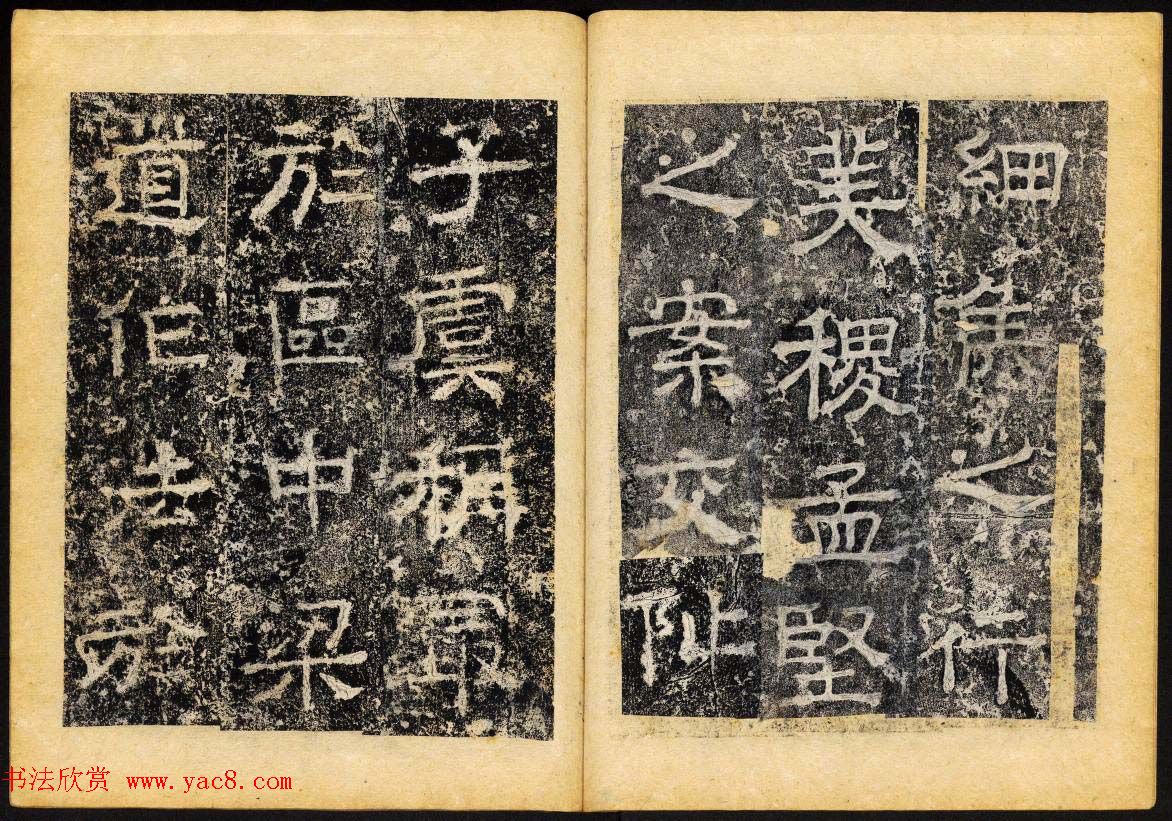 細侯之行
美稷孟堅
之案交阯
子虞稱
於區中梁
道作
书法欣赏 www.yac8.com